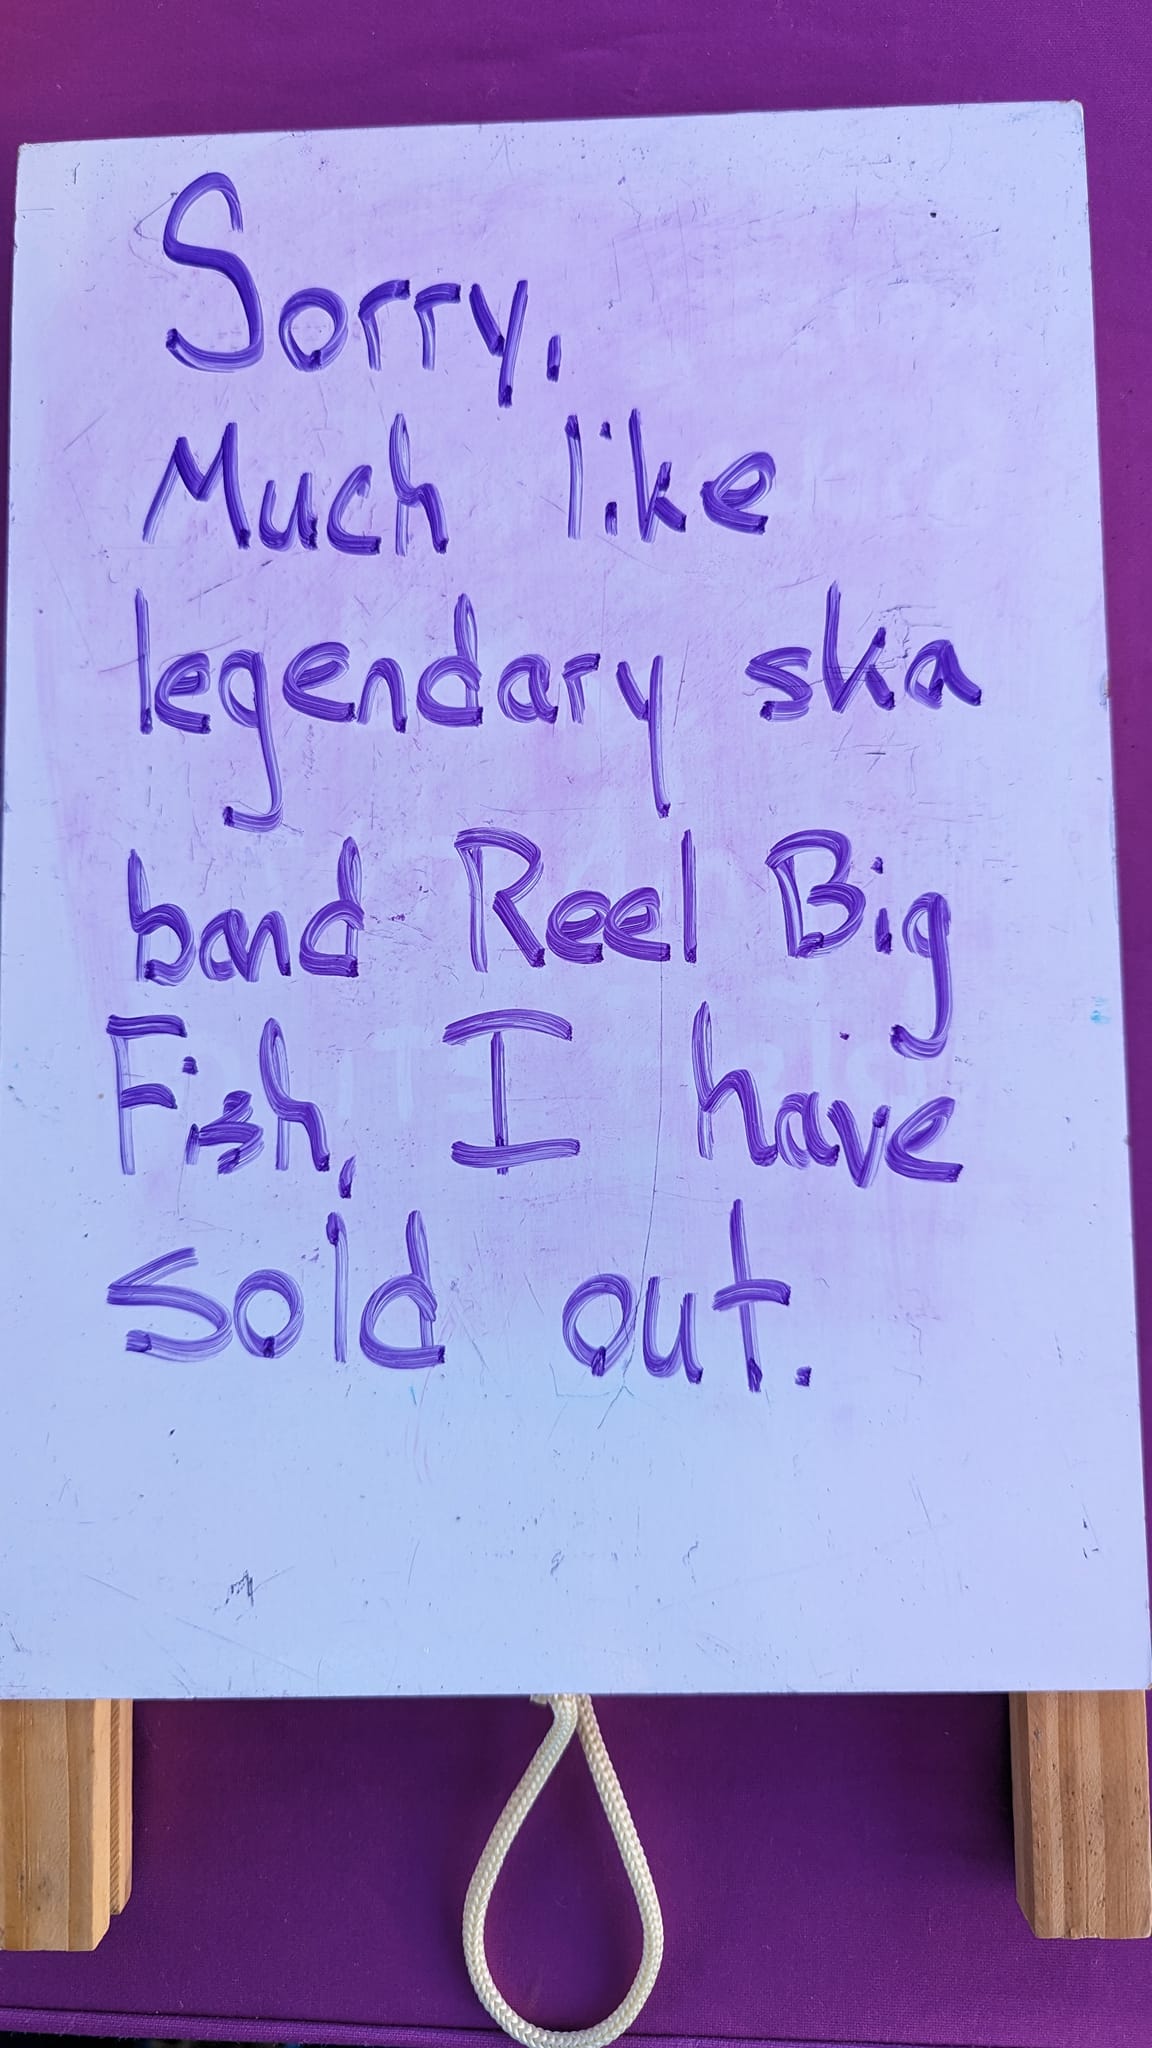 Sorry,
Much like
legendary ska
band Reel Big
Fish, I have
sold out.